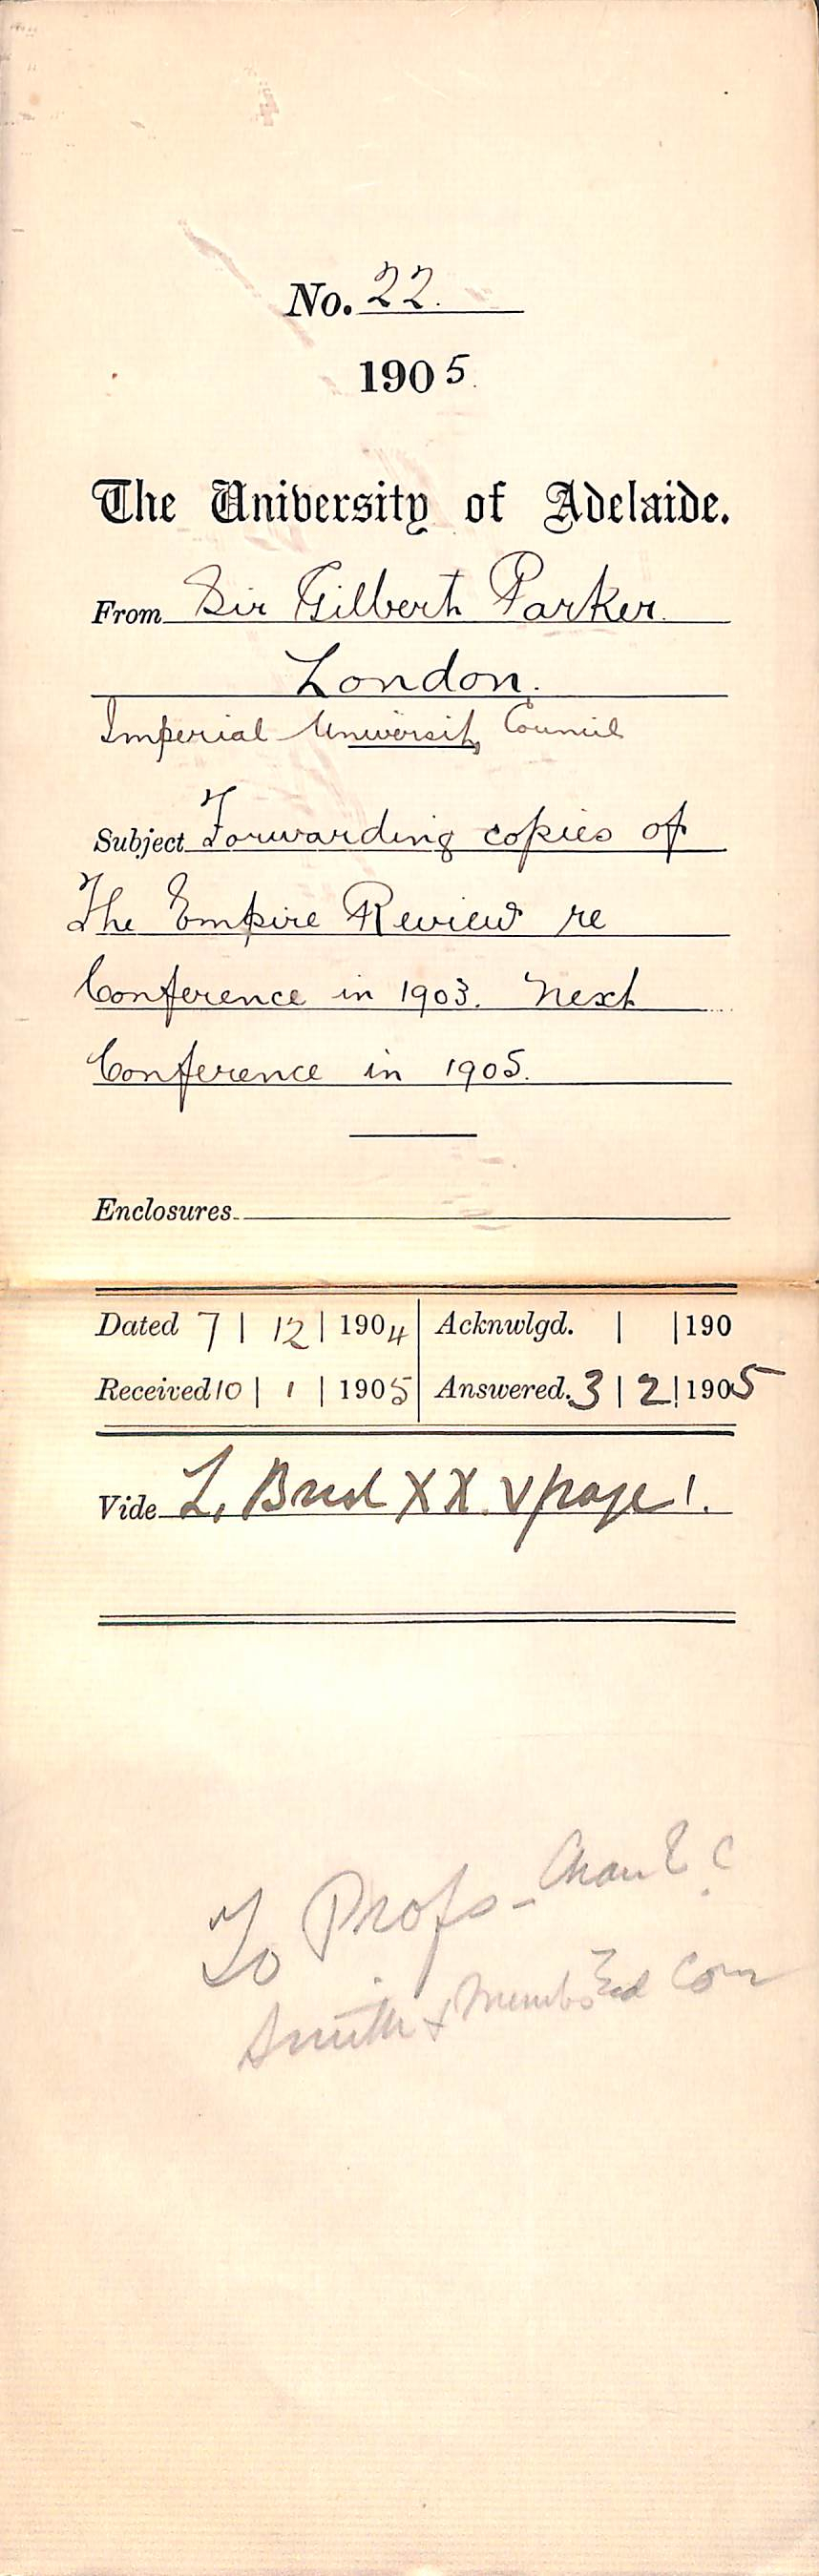 No. 22.
1905
The University of Adelaide.
From Sir Gilbert Parker
London.
Imperial University Council
Subject Forwarding copies of
The Empire Review re
Conference in 1903. Next
Conference in 1905.
Enclosures
Dated 7 | 12 | 1904 Acknwlgd. | | 190
Received 10 | 1 | 1905 Answered. 3 | 2 | 1905
Vide L. XX.V page 1.
To Profs -
Smith + Com